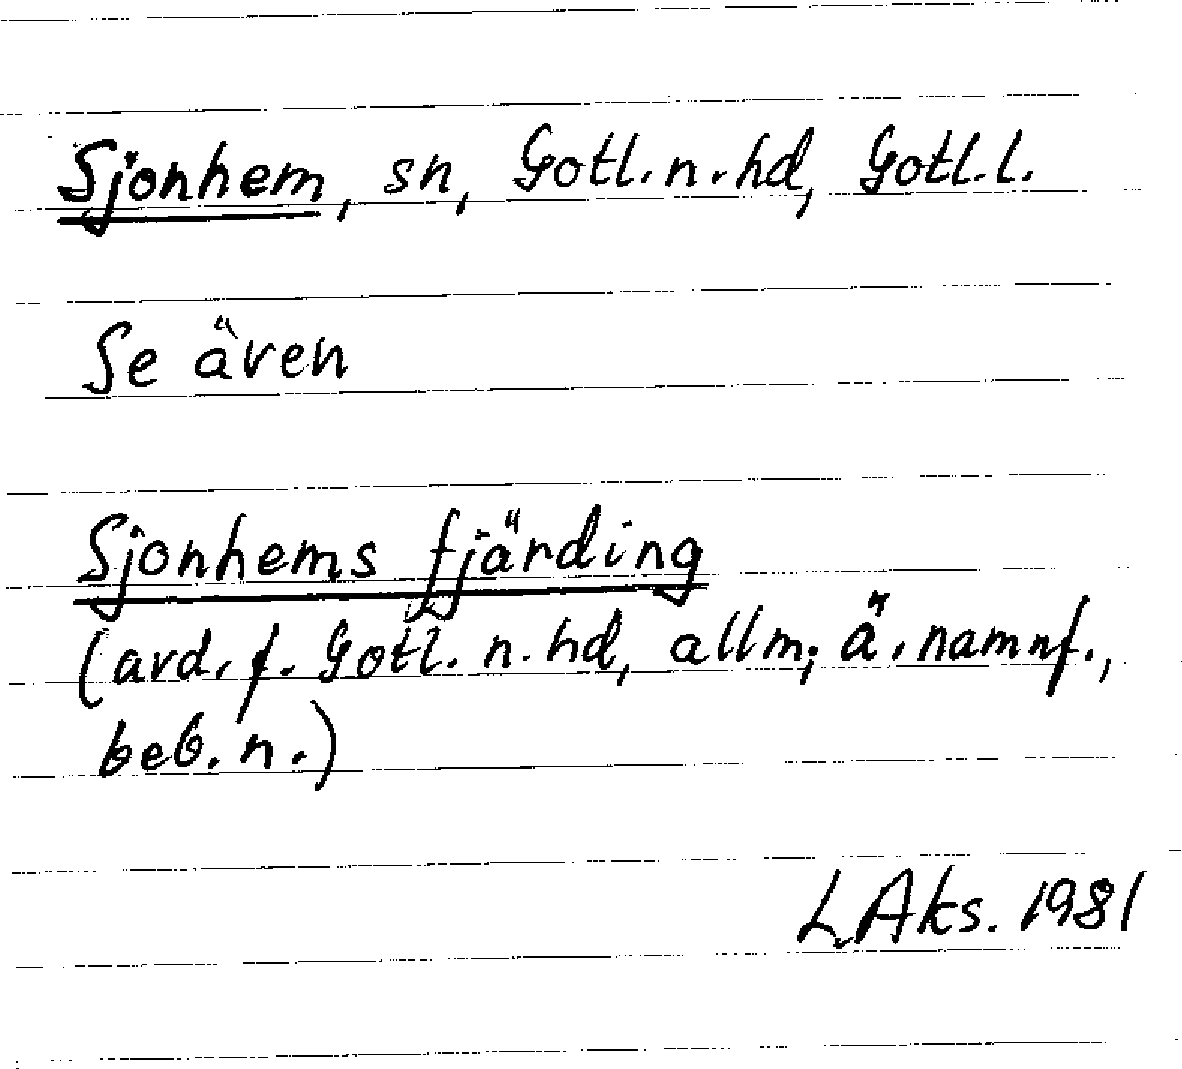 Sjonhem, sn, Gotl. n. hd, Gotl. l.
Se även
Sjonhems fjärding
(avd. f. Gotl. n. hd, allm; ä. namnf.,
beb. n.)
L. Aks. 1981